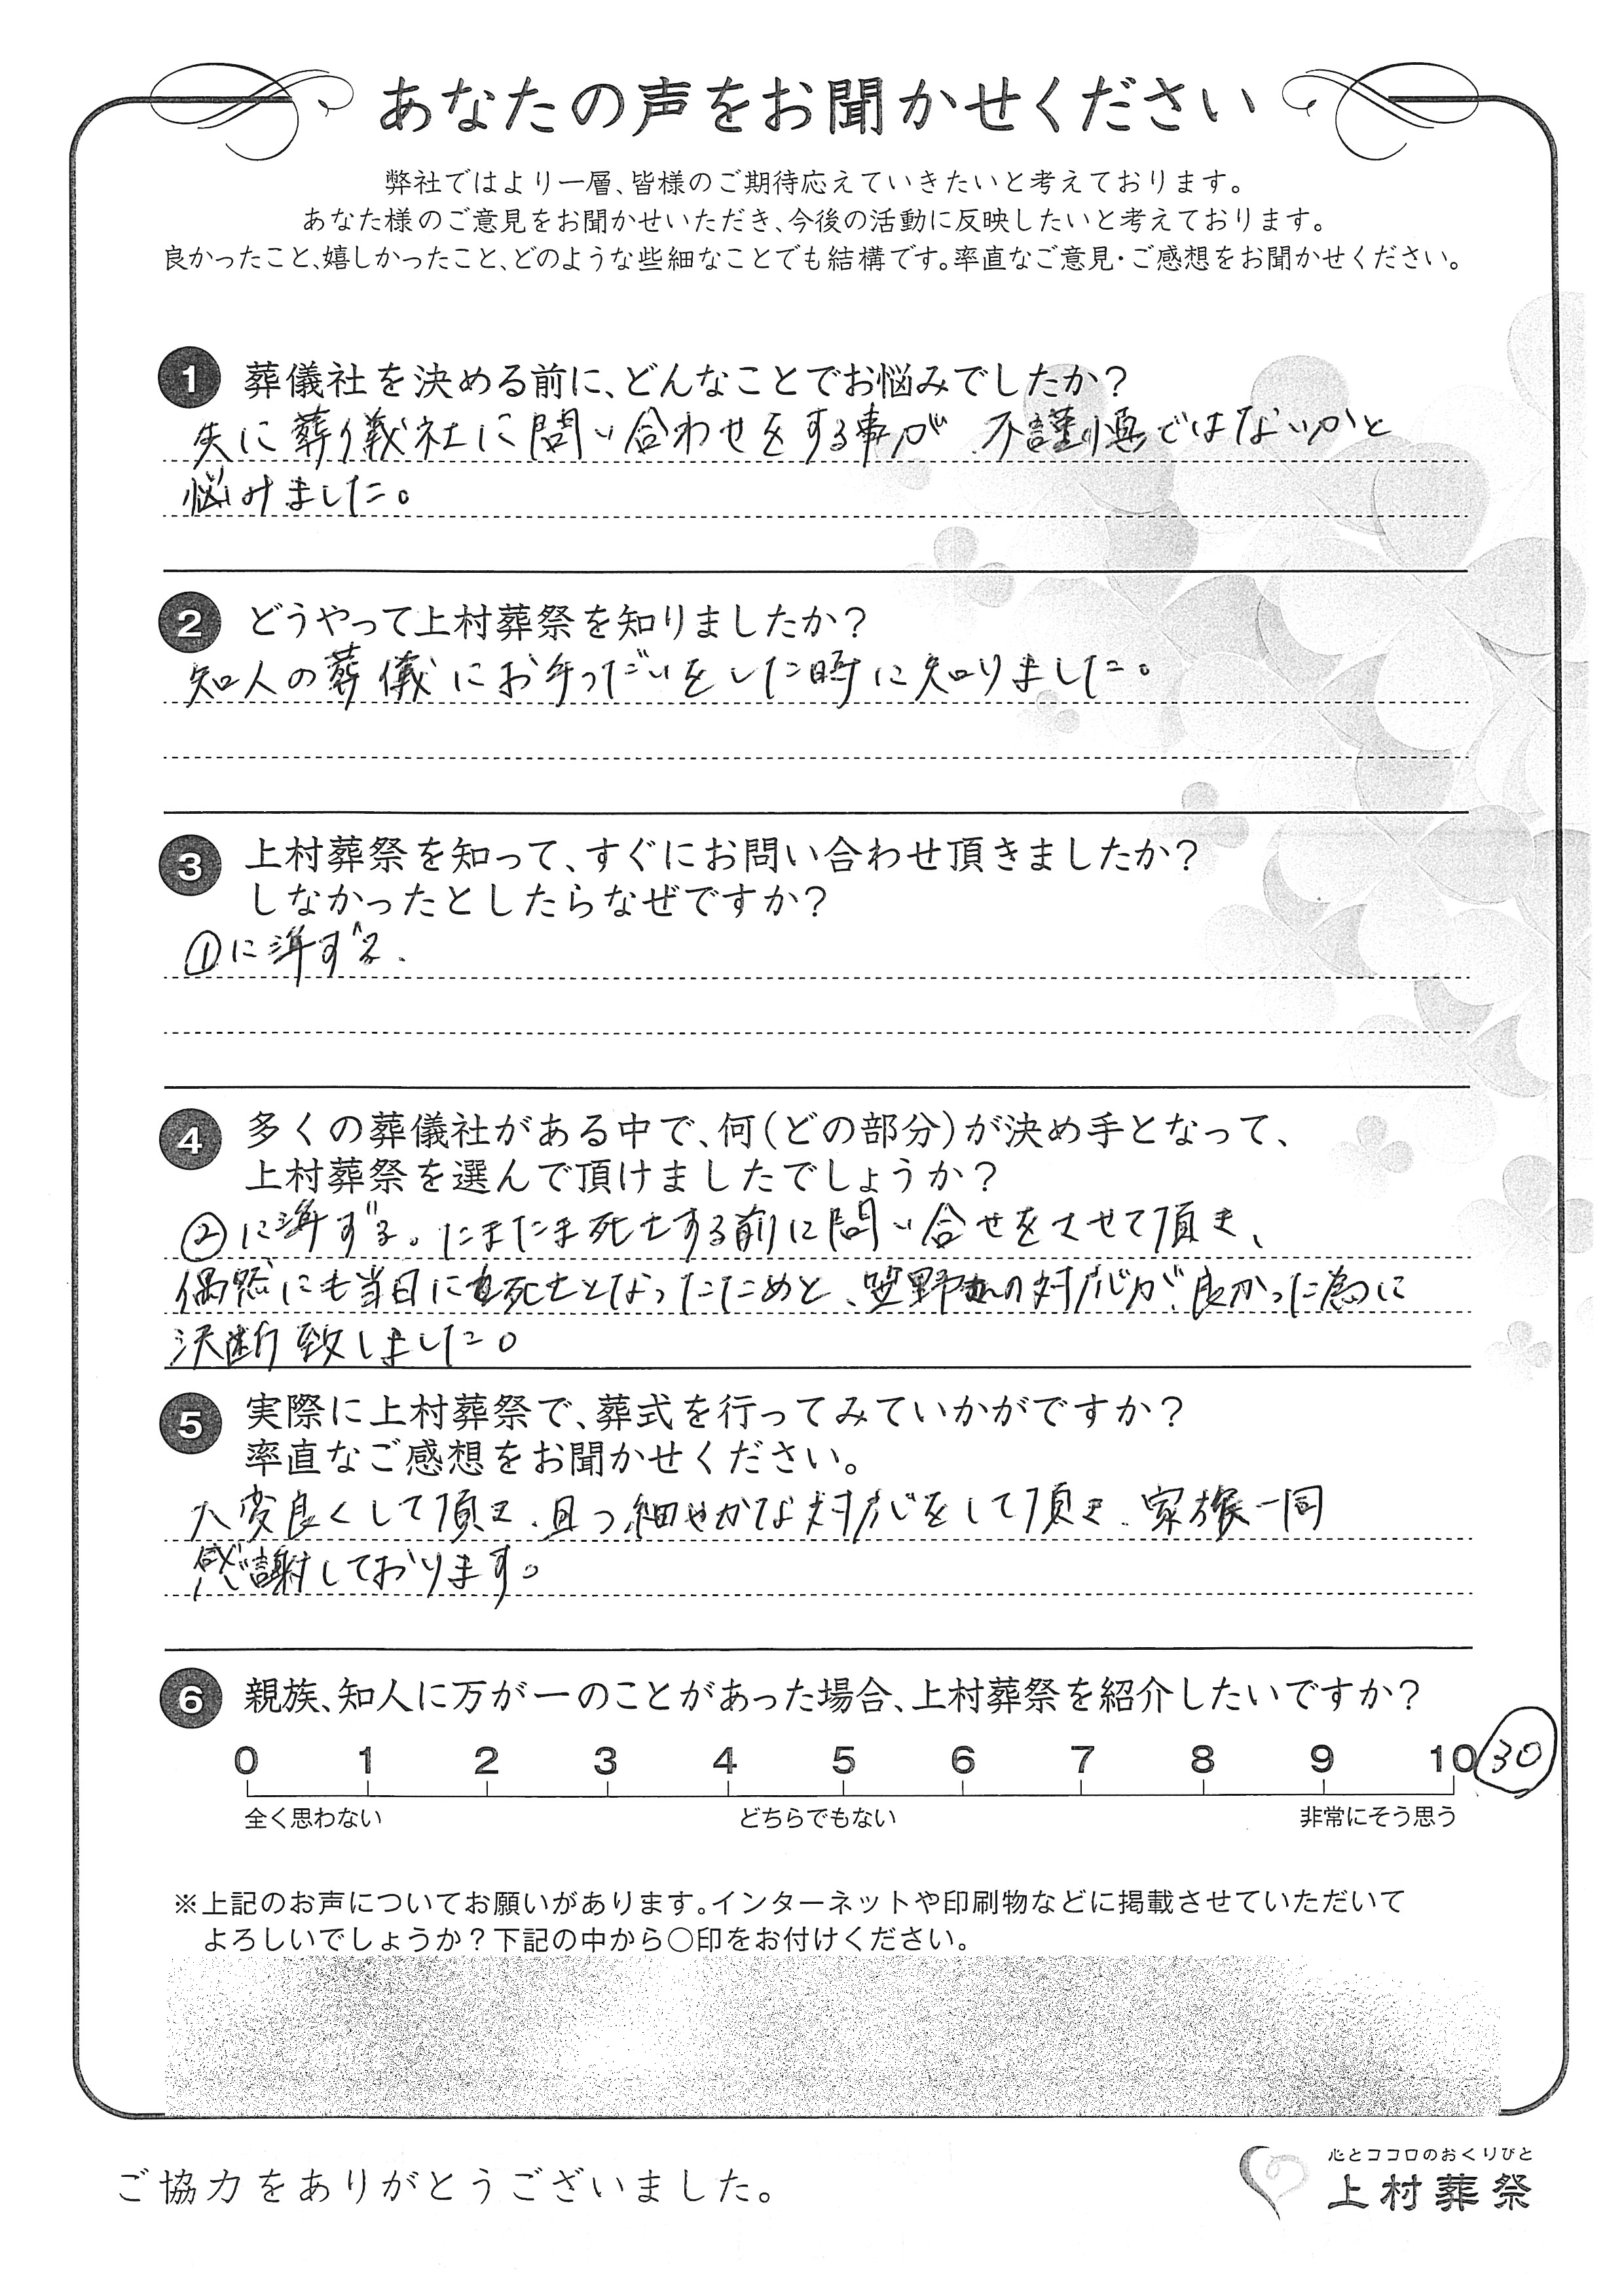 あなたの声をお聞かせください
弊社ではより一層、皆様のご期待応えていきたいと考えております。
あなた様のご意見をお聞かせいただき、今後の活動に反映したいと考えております。
良かったこと、嬉しかったこと、どのような些細なことでも結構です。率直なご意見・ご感想をお聞かせください。
1 葬儀社を決める前に、どんなことでお悩みでしたか?
先に葬儀社に問い合わせをする事が 不謹慎ではないかと
悩みました。
2 どうやって上村葬祭を知りましたか?
知人の葬儀にお手つだいをした時に知りました。
3 上村葬祭を知って、すぐにお問い合わせ頂きましたか?
しなかったとしたらなぜですか?
①に準ずる.
4 多くの葬儀社がある中で、何(どの部分)が決め手となって、
上村葬祭を選んで頂けましたでしょうか?
②に準ずる。たまたま死亡する前に問い合せをさせて頂き、
偶然にも当日に死亡となったためと、笹野さんの対応が、良かった為に
決断致しました。
5 実際に上村葬祭で、葬式を行ってみていかがですか?
率直なご感想をお聞かせください。
大変良くして頂き、且つ細やかな対応をして頂き、家族一同
感謝しております。
6 親族、知人に万が一のことがあった場合、上村葬祭を紹介したいですか?
0 1 2 3 4 5 6 7 8 9 10 30
全く思わない どちらでもない 非常にそう思う
※上記のお声についてお願いがあります。インターネットや印刷物などに掲載させていただいて
よろしいでしょうか?下記の中から○印をお付けください。
ご協力をありがとうございました。
心とココロのおくりびと
上村葬祭